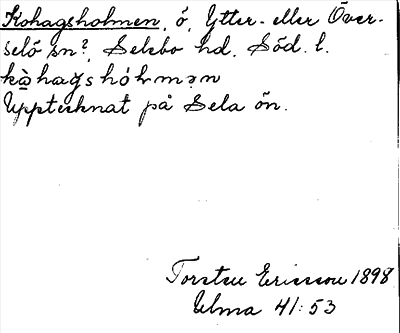 Kohagsholmen, ö, Ytter- eller Över-
selö sn?, Selebo hd. Söd. l.
kò̱hagshólmən
Upptecknat på Sela ön.
Torsten Ericsson 1898
Ulma 41:53